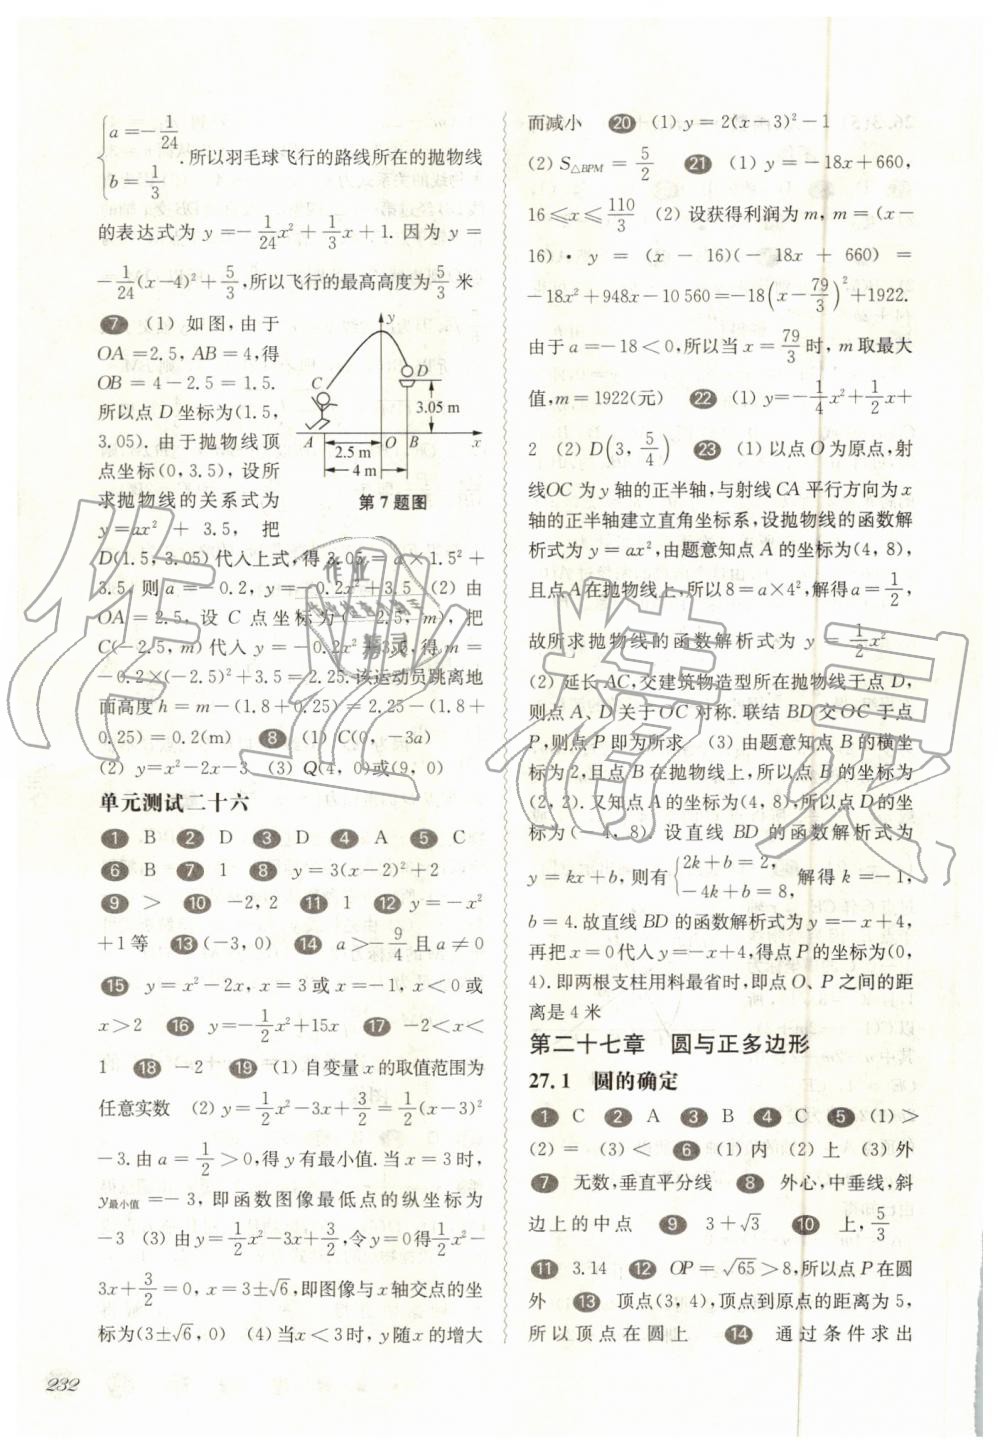 {a=-1/24
b=1/3 .所以羽毛球飞行的路线所在的抛物线
的表达式为 y=-1/24x²+1/3x+1.因为 y=
-1/24(x-4)²+5/3,所以飞行的最高高度为5/3米
7 (1) 如图,由于
OA=2.5, AB=4,得
OB=4-2.5=1.5.
所以点 D 坐标为(1.5,
3.05). 由于抛物线顶
点坐标(0,3.5),设所
求抛物线的关系式为
y=ax² + 3.5, 把
y
C
D
3.05 m
A
O
B
x
2.5 m
4 m
第 7 题图
D(1.5,3.05)代入上式,得 3.05=a×1.5²+
3.5,则 a=-0.2, y=-0.2x²+3.5 (2) 由
OA=2.5,设 C 点坐标为(-2.5,m),把
C(-2.5,m)代入 y=-0.2x²+3.5,得 m=
-0.2×(-2.5)²+3.5=2.25.该运动员跳离地
面高度 h=m-(1.8+0.25)=2.25-(1.8+
0.25)=0.2(m) 8 (1) C(0,-3a)
(2) y=x²-2x-3 (3) Q(4,0)或(9,0)
单元测试二十六
1 B 2 D 3 D 4 A 5 C
6 B 7 1 8 y=3(x-2)²+2
9 > 10 -2,2 11 1 12 y=-x²
+1等 13 (-3,0) 14 a>-9/4且 a≠0
15 y=x²-2x,x=3或x=-1,x<0或
x>2 16 y=-1/2x²+15x 17 -2<x<
1 18 -2 19 (1) 自变量 x 的取值范围为
任意实数 (2) y=1/2x²-3x+3/2=1/2(x-3)²
-3.由 a=1/2>0,得 y 有最小值.当 x=3时,
y最小值=-3,即函数图像最低点的纵坐标为
-3 (3) 由 y=1/2x²-3x+3/2,令 y=0得1/2x²-
3x+3/2=0,x=3±√6,即图像与 x 轴交点的坐
标为(3±√6,0) (4) 当 x<3时,y随x的增大
而减小 20 (1) y=2(x-3)²-1
(2) S△BPM=5/2 21 (1) y=-18x+660,
16≤x≤110/3 (2) 设获得利润为 m,m=(x-
16)·y=(x-16)(-18x+660)=
-18x²+948x-10 560=-18(x-79/3)²+1922.
由于 a=-18<0,所以当 x=79/3时,m取最大
值,m=1922(元) 22 (1) y=-1/4x²+1/2x+
2 (2) D(3,5/4) 23 (1) 以点 O 为原点,射
线OC 为 y 轴的正半轴,与射线 CA 平行方向为 x
轴的正半轴建立直角坐标系,设抛物线的函数解
析式为 y=ax²,由题意知点 A 的坐标为(4,8),
且点 A 在抛物线上,所以 8=a×4²,解得a=1/2,
故所求抛物线的函数解析式为 y=1/2x²
(2) 延长 AC,交建筑物造型所在抛物线于点 D,
则点 A、D 关于 OC 对称.联结 BD 交 OC 于点
P,则点 P 即为所求 (3) 由题意知点 B 的横坐
标为2,且点 B 在抛物线上,所以点 B 的坐标为
(2,2).又知点 A 的坐标为(4,8),所以点 D 的坐
标为(-4,8). 设直线 BD 的函数解析式为
y=kx+b,则有{2k+b=2,
-4k+b=8, 解得 k=-1,
b=4.故直线 BD 的函数解析式为 y=-x+4,
再把 x=0代入 y=-x+4,得点 P 的坐标为(0,
4).即两根支柱用料最省时,即点 O、P 之间的距
离是 4 米
第二十七章 圆与正多边形
27.1 圆的确定
1 C 2 A 3 B 4 C 5 (1) >
(2) = (3) < 6 (1) 内 (2) 上 (3) 外
7 无数,垂直平分线 8 外心,中垂线,斜
边上的中点 9 3+√3 10 上,5/3
11 3.14 12 OP=√65>8,所以点 P 在圆
外 13 顶点(3,4),顶点到原点的距离为 5,
所以顶点在圆上 14 通过条件求出
232
作业精灵